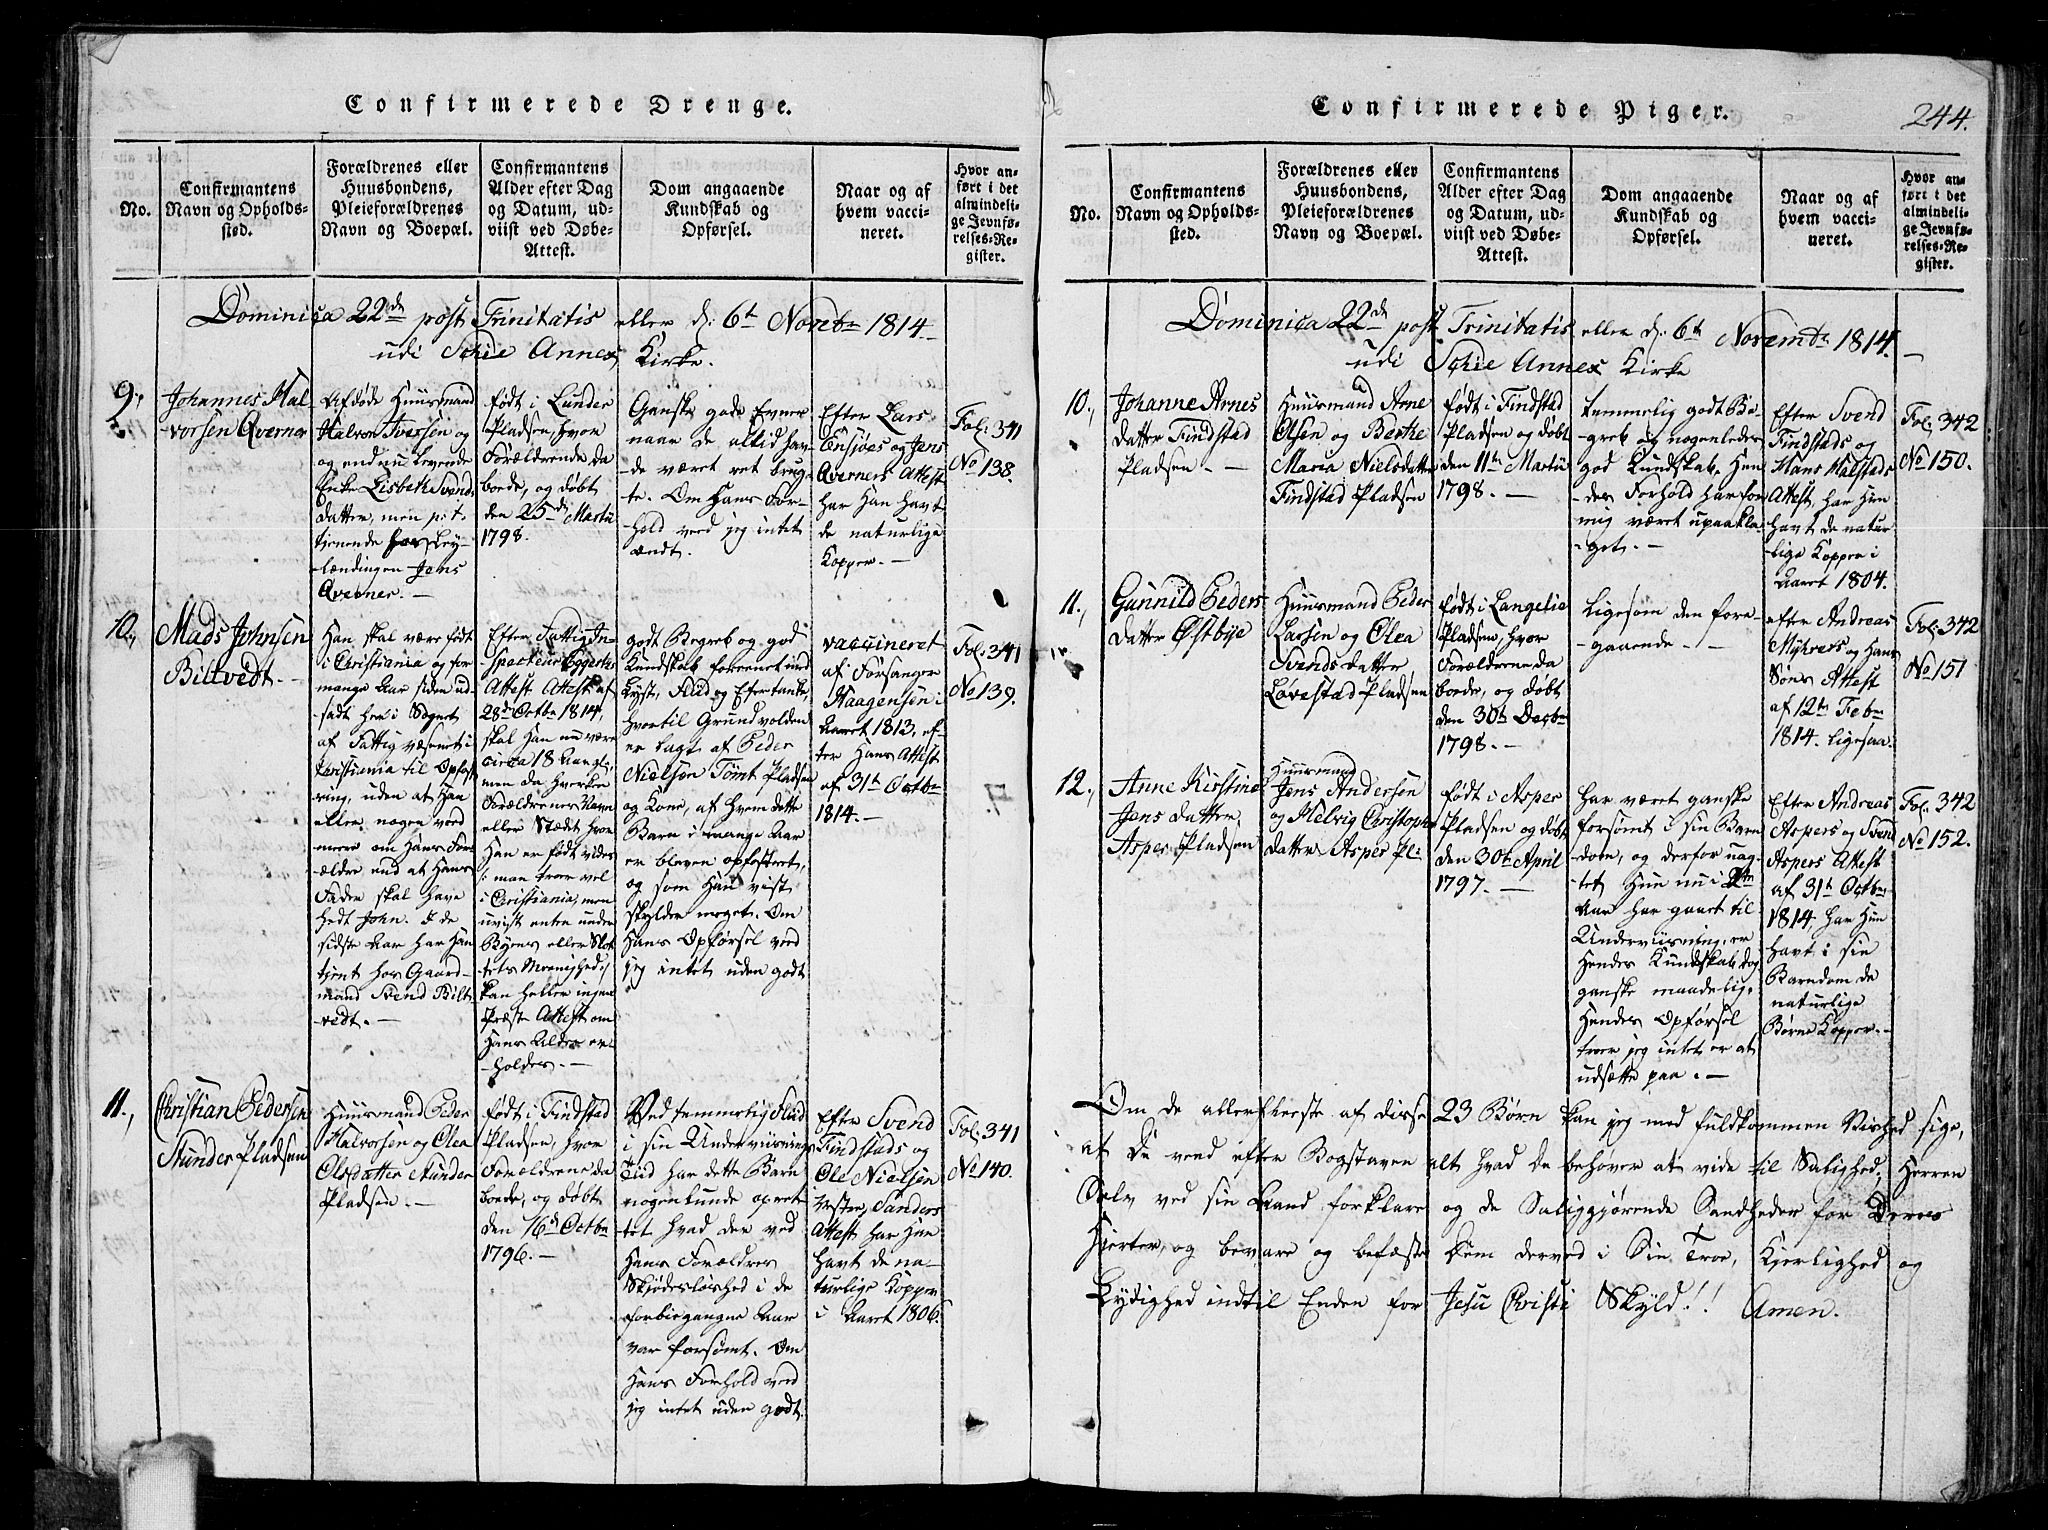 Confirmerede Drenge.
No.
Confirmantens
Navn og Opholds-
sted.
Forældrenes eller
Huusbondens,
Pleieforældrenes
Navn og Boepæl.
Confirmantens
Alder efter Dag
og Datum, ud-
viist ved Døbe-
Attest.
Dom angaaende
Kundskab og
Opførsel.
Naar og af
hvem vacci-
neret.
Hvor an-
ført i det
almindeli-
ge Jevnfø-
relses-Re-
gister.
Dominica 22de post Trinitatis eller d: 6te Novbr 1814.
udi Schie Annex Kirke.
9.,
Johannes Hal-
vorsen Qverner
Afdøde Huusmand
Halvor Iversen og
og endnu levende
Enke Lisbeth Svends
datter, men p: t.
tienende hos Ley-
lændingen Jens
Qverner. –
født i Lunder
Pladsen, hvor
Forældrene da
boede, og døbt
den 25de Martii
1798.
Ganske gode Evner
naar de altid hav-
de været ret brug-
te. Om Hans For-
hold veed jeg intet
ondt.
Efter Lars
Ensjøes og Jens
Qverners Attest
har Han havt
de naturlige
Kopper. –
Fol: 341
No 138.
10.,
Mads Johnsen
Biltvedt. –
Han skal være født
i Christiania og for
mange Aar siden ud-
sadt her i Sognet
af Fattigvæsenet i
Christiania til Opfost-
ring, uden at Han
eller nogen veed
meere om Hans For-
ældre end at Hans
Fader skal have
hedt John. I de
sidste Aar har Han
tient hos Gaard-
mand Svend Bilt
vedt. –
Efter Fattig In-
specteur Eggertes
Attest af
28de Octbr 1814,
skal Han nu være
circa 18 Aar gl:
men da hverken
Forældrenes Navn
eller Stædet hvor
Han er født vides
/: man troer vel
i Christiania, men
uvist enten under
Byens eller Slot
tets Meenighed :/
kan heller ingen
Præste Attest om
Hans Alder er-
holdes. –
godt Begreb og god
Kundskab forenet med
Lyst, Flid og Eftertanke,
hvortil Grundvolden
er lagt af Peder
Nielsen Tømt Pladsen
og Kone, af hvem dette
Barn i mange Aar
er bleven opfostret,
og som Han vist
skylder meget. Om
Hans Opførsel veed
jeg intet uden godt
vaccineret
af Forsanger
Haagensen i
Aaret 1813, ef-
ter Hans Attest
af 31te Octbr
1814. –
Fol: 341
No 139.
11.,
Christian Pedersen
Stunder Pladsen
Huusmand Peder
Halvorsen og Olea
Olsdatter Stunder
Pladsen. –
født i Findstad
Pladsen, hvor
Forældrene da
boede, og døbt
den 16de Octbr
1796. –
Ved temmelig Flid
i sin Underviisnings
Tiid har dette Barn
nogenlunde opret-
tet hvad der ved
Hans Forældres
Skjødesløshed i de
forbiegangne Aar
var forsømt. Om
Hans Forhold veed
jeg intet uden godt.
Efter Svend
Findstads og
Ole Nielsen
Sanders
Attest har Han
havt de na-
turlige Kopper
i Aaret 1806.
Fol: 341
No 140.
Confirmerede Piger.
244.
No.
Confirmantens
Navn og Opholds-
sted.
Forældrenes eller
Huusbondens,
Pleieforældrenes
Navn og Boepæl.
Confirmantens
Alder efter Dag
og Datum, ud-
viist ved Døbe-
Attest.
Dom angaaende
Kundskab og
Opførsel.
Naar og af
hvem vacci-
neret.
Hvor an-
ført i det
almindeli-
ge Jevnfø-
relses-Re-
gister.
Dominica 22de post Trinitatis eller d: 6te Novembr 1814. –
udi Schie Annex Kirke
10.,
Johanne Arnes
datter Findstad
Pladsen – –
Huusmand Arne
Olsen og Berthe
Maria Nielsdatter
Findstad Pladsen
født i Findstad
Pladsen og døbt
den 11te Martii
1798. –
temmelig godt Be-
greb og nogenledes
god Kundskab. Hen-
des Forhold har for
mig været upaakla-
get. –
Efter Svend
Findstads og
Hans Kalstads
Attest, har Hun
havt de natur-
lige Kopper i
Aaret 1804.
Fol: 342
No 150.
11.,
Gunnild Peders
datter Østbye
Huusmand Peder
Larsen og Olea
Svendsdatter
Løvestad Pladsen
født i Langelie
Pladsen, hvor
Forældrene da
boede, og døbt
den 30te Decbr
1798. –
Ligesom den fore-
gaaende. –
efter Andreas
Myhrers og Hans
Søns Attest
af 12te Febr
1814. ligesaa.
Fol: 342
No 151
12.,
Anne Kirstine
Jens datter,
Asper Pladsen
Huusmand
Jens Andersen
og Helvig Christophers
datter Asper Pl:
født i Asper
Pladsen og døbt
den 30te April
1797. –
har været ganske
forsømt i sin Barn
dom, og derfor uag-
tet Hun nu i
Aar har gaaet til
Underviisning, er
Hendes Kundskab dog
ganske maadelig.
Hendes Opførsel
troer jeg intet er at
udsætte paa. –
Efter Andreas
Aspers og Svend
Aspers Attest
af 31te Octbr
1814, har Hun
havt i sin
Barndom de
naturlige
Børne Kopper. –
Fol: 342
No 152.
Om de allerfleeste af disse 23 Børn kan jeg med fuldkommen Vished sige,
at De veed efter Bogstaven alt hvad De behøver at vide til Salighed; Herren
Selv ved sin Aand forklare og de Saliggjørende Sandheder for Deres
Hierter, og bevare og befæste Dem derved i Sin Troe, Kjerlighed og
Lydighed indtil Enden for Jesu Christi Skyld!! Amen.